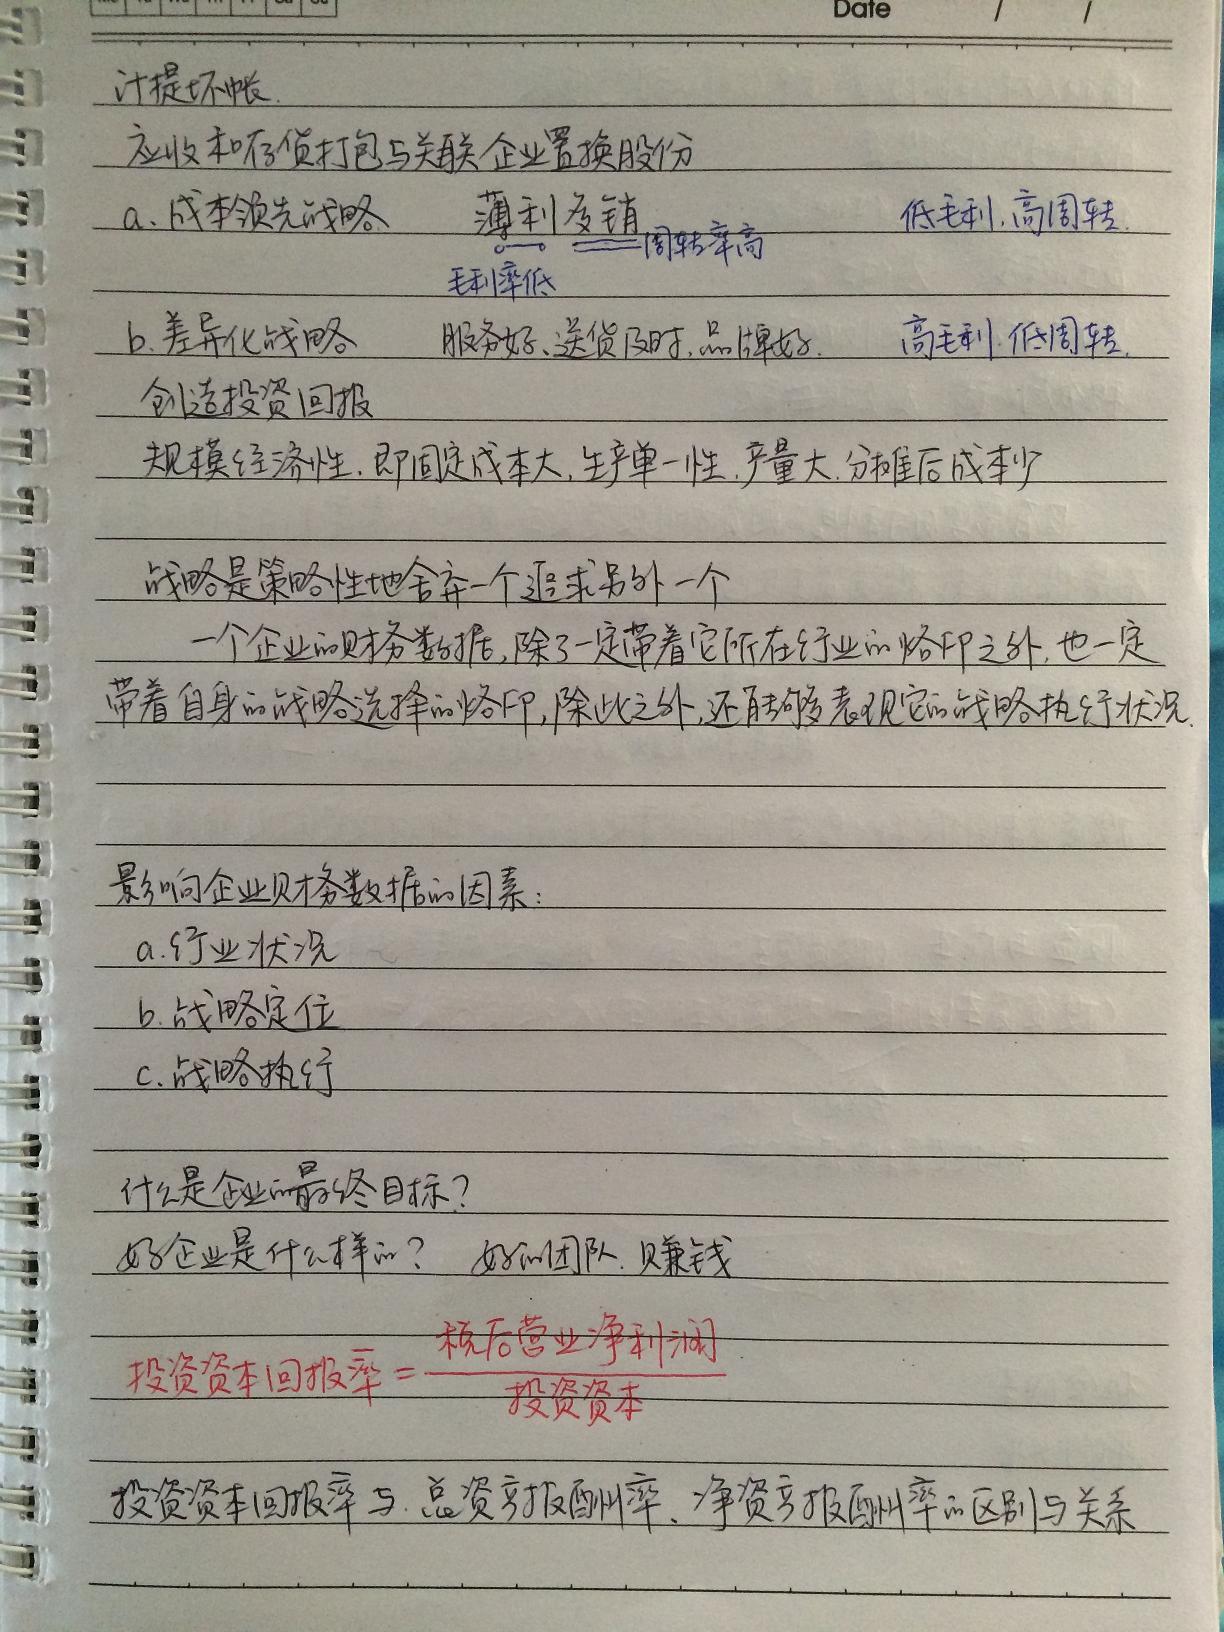 Mo Tu We Th Fr Sa Su
Date / /
计提坏帐.
应收和存货打包与关联企业置换股份
a. 成本领先战略 薄利多销 低毛利.高周转.
周转率高
毛利率低
b. 差异化战略 服务好、送货及时,品牌好. 高毛利.低周转.
创造投资回报
规模经济性.即固定成本大,生产单一性.产量大.分摊后成本少
战略是策略性地舍弃一个追求另外一个
一个企业的财务数据,除了一定带着它所在行业的烙印之外.也一定
带着自身的战略选择的烙印,除此之外,还能够表现它的战略执行状况.
影响企业财务数据的因素:
a.行业状况
b.战略定位
c.战略执行
什么是企业的最终目标?
好企业是什么样的? 好的团队.赚钱
税后营业净利润
投资资本回报率=
投资资本
投资资本回报率与.总资产报酬率、净资产报酬率的区别与关系